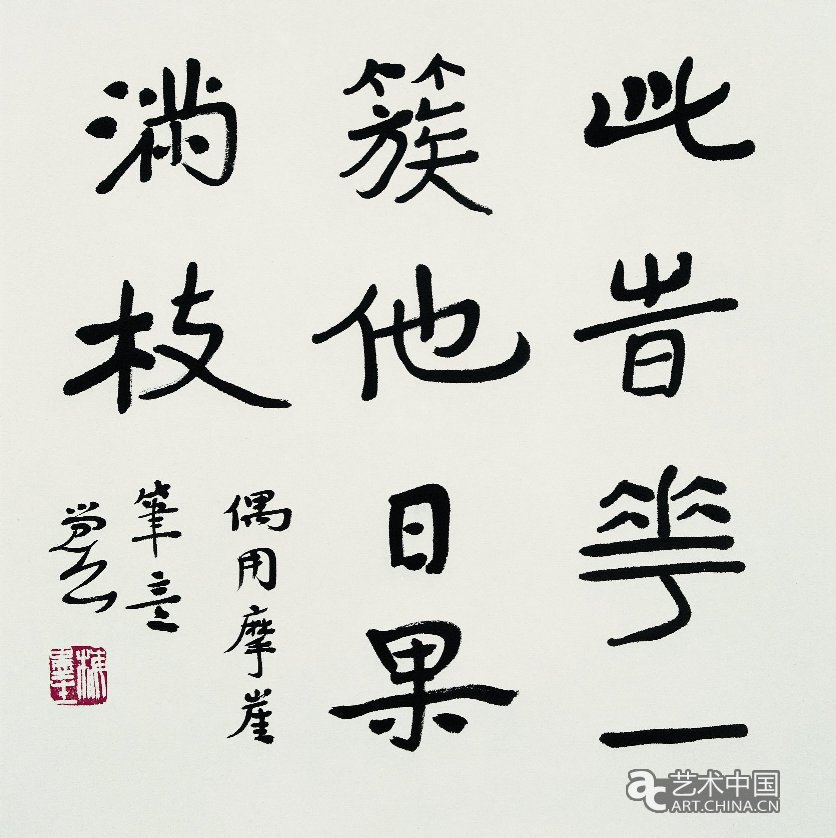 此旹華一
簇他日果
滿枝
偶用摩崖
筆意
觉公
梅墨生
艺术中国
ART.CHINA.CN